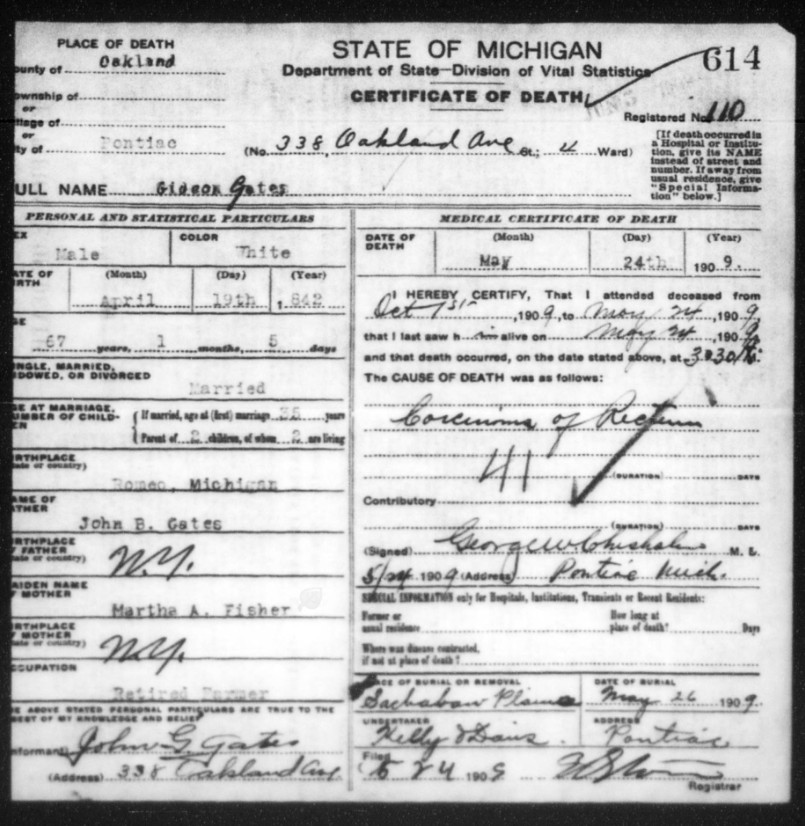 PLACE OF DEATH
ounty of Oakland
ownship of
or
llage of
or
ity of Pontiac
STATE OF MICHIGAN
Department of State—Division of Vital Statistics
CERTIFICATE OF DEATH
614
Registered No. 110
(No. 338 Oakland Ave St.; 4 Ward)
[If death occurred in
a Hospital or Institu-
tion, give its NAME
instead of street and
number. If away from
usual residence, give
"Special Informa-
tion" below.]
ULL NAME Gideon Gates
PERSONAL AND STATISTICAL PARTICULARS
EX
Male
COLOR
White
ATE OF
IRTH
(Month) (Day) (Year)
April 19th 1842
GE
67 years, 1 months, 5 days
INGLE, MARRIED,
IDOWED, OR DIVORCED
Married
GE AT MARRIAGE,
UMBER OF CHILD-
EN
If married, age at (first) marriage 35 years
Parent of 2 children, of whom 2 are living
IRTHPLACE
tate or country)
Romeo, Michigan
AME OF
ATHER
John B. Gates
IRTHPLACE
F FATHER
ate or country)
N.Y.
AIDEN NAME
F MOTHER
Martha A. Fisher
IRTHPLACE
F MOTHER
ate or country)
N.Y.
CCUPATION
Retired Farmer
HE ABOVE STATED PERSONAL PARTICULARS ARE TRUE TO THE
BEST OF MY KNOWLEDGE AND BELIEF
nformant) John G. Gates
(Address) 338 Oakland Ave
MEDICAL CERTIFICATE OF DEATH
DATE OF
DEATH
(Month) (Day) (Year)
May 24th 1909.
I HEREBY CERTIFY, That I attended deceased from
Oct 1st, 1909, to May 24, 1909,
that I last saw him alive on May 24, 1909,
and that death occurred, on the date stated above, at 3:30
The CAUSE OF DEATH was as follows:
Carcinoma of Rectum
41
(DURATION) DAYS
Contributory
(DURATION) DAYS
(Signed) George W Chisholm M. D.
5/24 1909 (Address) Pontiac Mich.
SPECIAL INFORMATION only for Hospitals, Institutions, Transients or Recent Residents:
Former or
usual residence
How long at
place of death? Days
Where was disease contracted,
if not at place of death?
PLACE OF BURIAL OR REMOVAL
Sachabaw Plains
DATE OF BURIAL
May 26 1909.
UNDERTAKER
Kelly & Davis.
ADDRESS
Pontiac
Filed
5 24 1909
Registrar